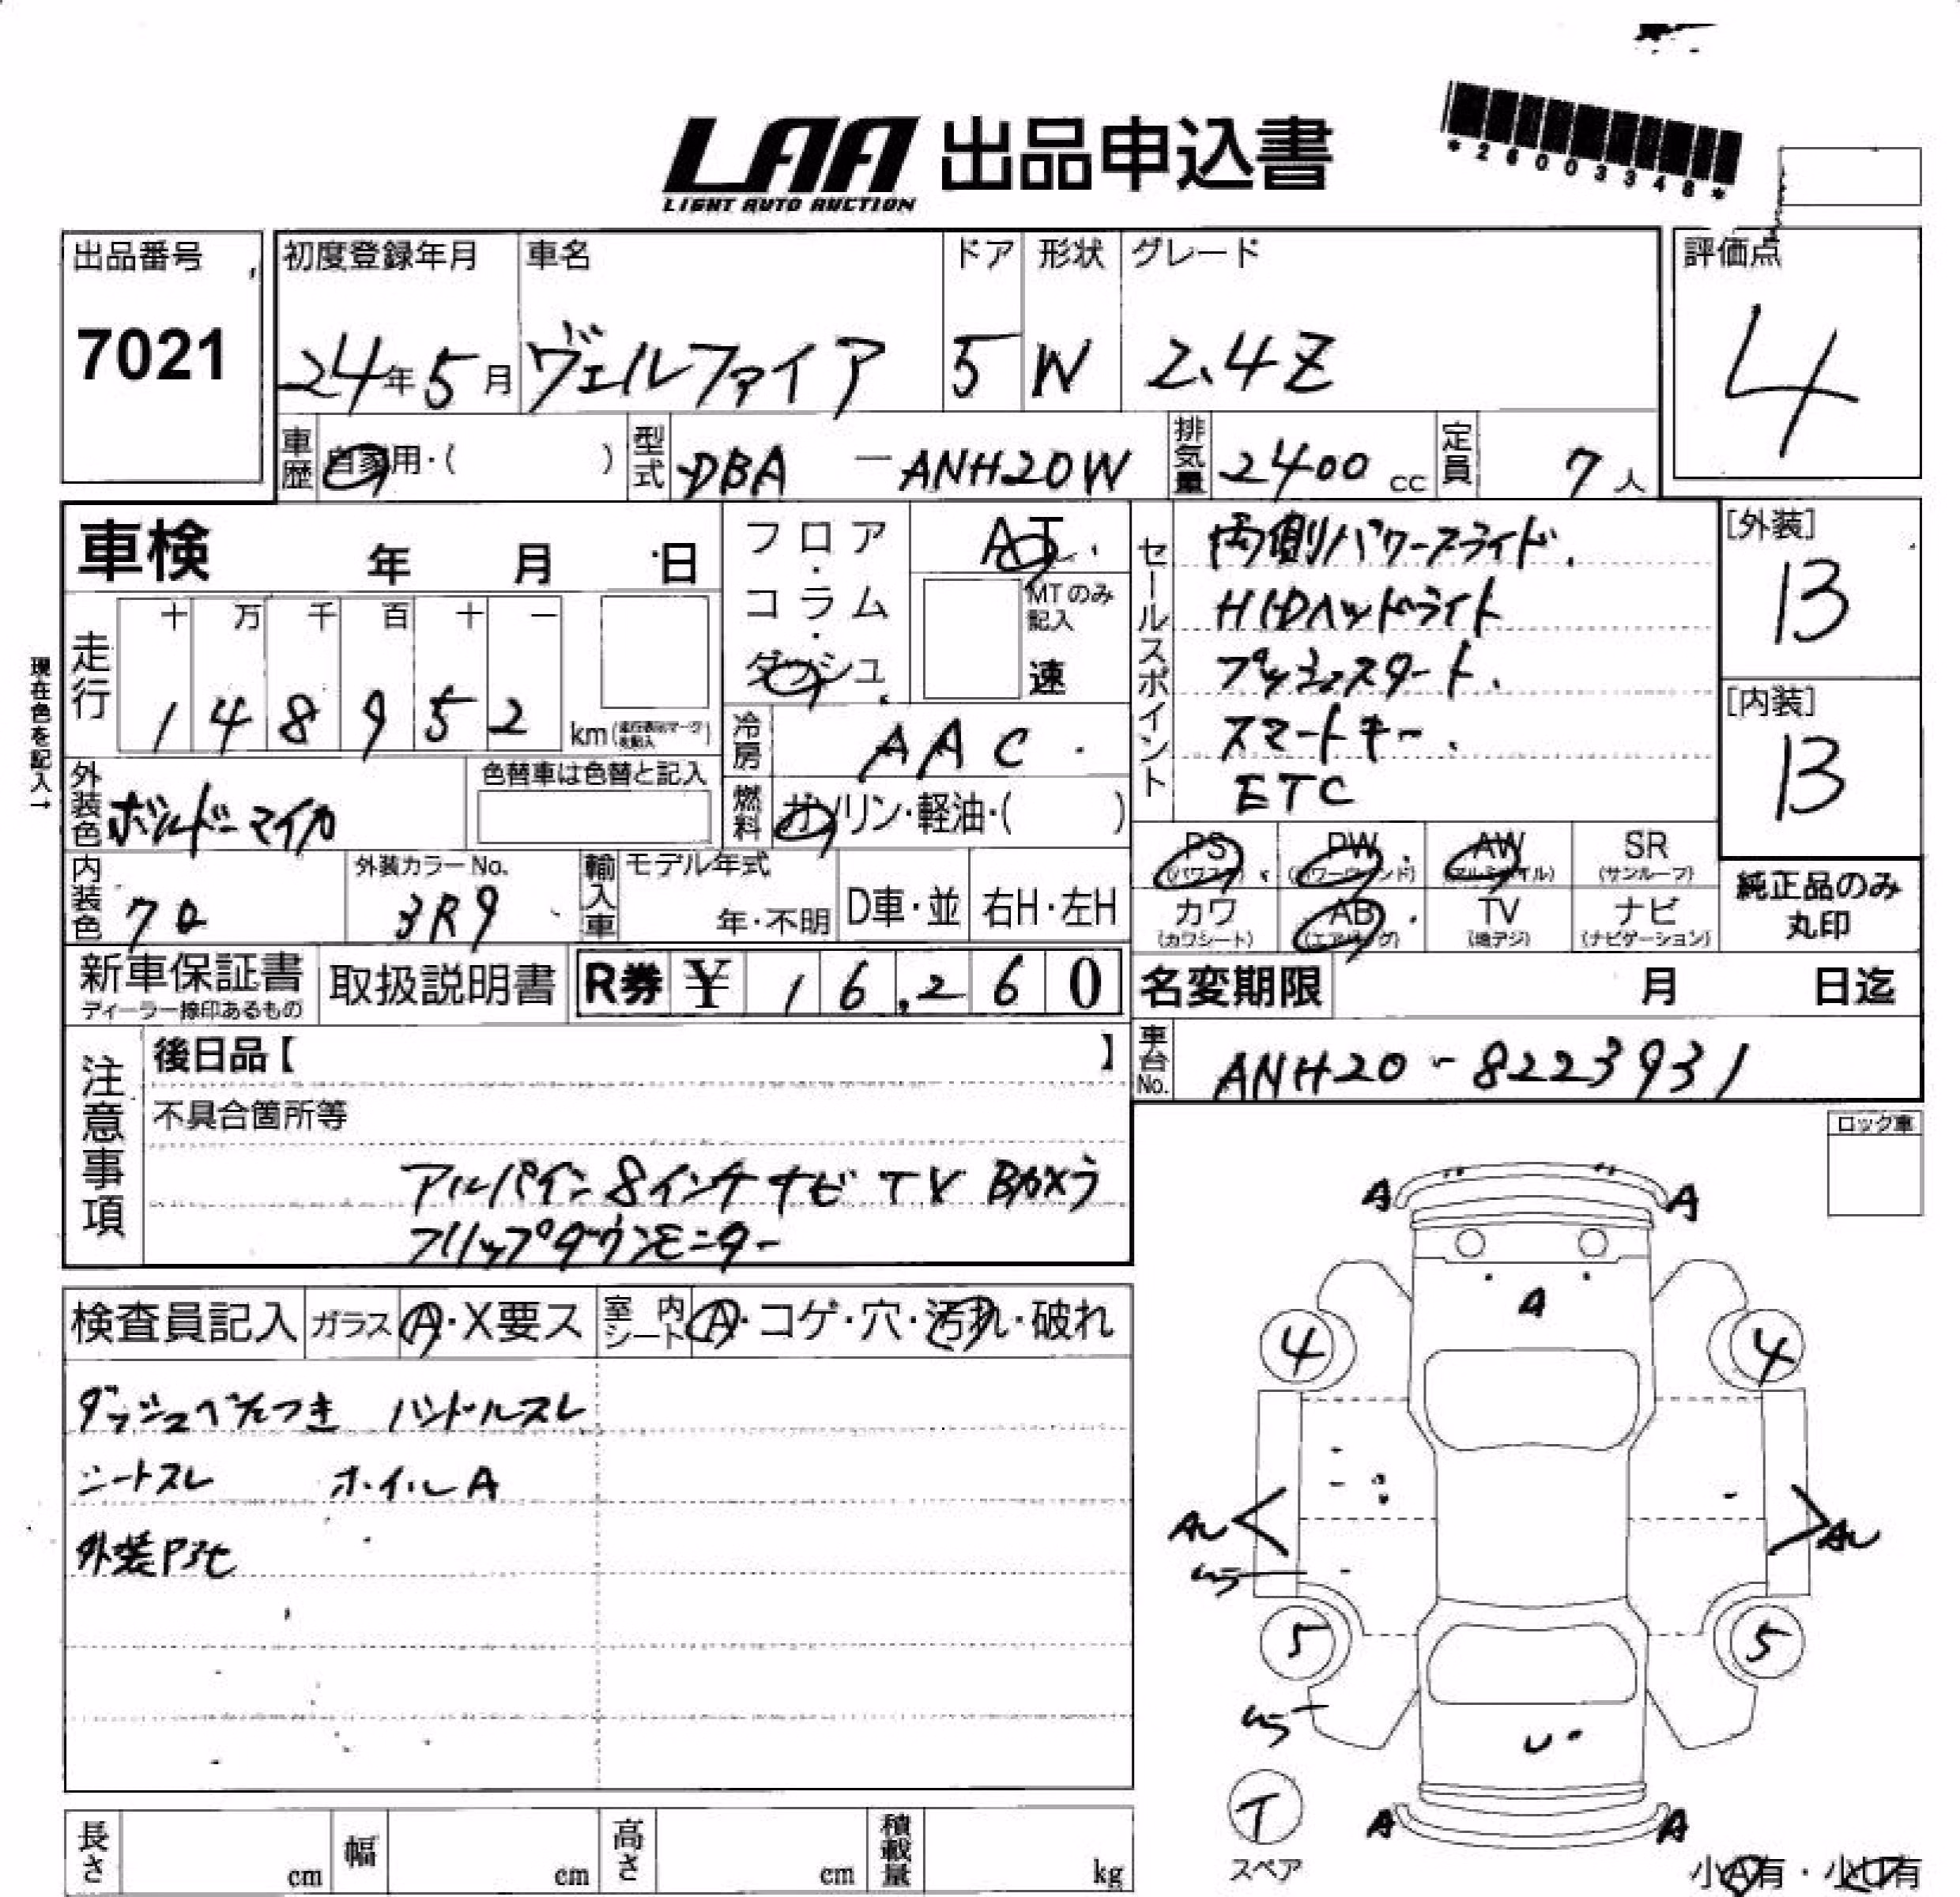 LAA 出品申込書
LIGHT AUTO AUCTION
*26003348*
出品番号
7021
初度登録年月
24年5月
車名
ヴェルファイア
ドア
5
形状
W
グレード
2.4Z
評価点
4
車歴
自家用・( )
型式
DBA - ANH20W
排気量
2400 cc
定員
7人
車検 年 月 日
フロア・コラム・ダッシュ
AT
MTのみ記入
速
セールスポイント
両側パワースライド.
HIDヘッドライト
プッシュスタート.
スマートキー.
ETC
[外装]
B
[内装]
B
現在色を記入→
走行
十 万 千 百 十 一
1 4 8 9 5 2
km
冷房
AAC
外装色
色替車は色替と記入
燃料
ガソリン・軽油・( )
内装色
外装カラーNo.
3R9
輸入車
モデル年式
年・不明
D車・並
右H・左H
PS
PW
AW
SR
(サンルーフ)
カワ
(カワシート)
AB
(エアバッグ)
TV
(地デジ)
ナビ
(ナビゲーション)
純正品のみ
丸印
新車保証書
ディーラー捺印あるもの
取扱説明書
R券 ¥ 16,260
名変期限 月 日迄
車台No.
ANH20-8223931
注意事項
後日品【 】
不具合箇所等
アルパイン 8インチ ナビ TV Bカメラ
フリップダウンモニター
ロック車
検査員記入
ガラス
A・X要ス
室内シート
A・コゲ・穴・汚れ・破れ
ダッシュべたつき ハンドルスレ
シートスレ ホイルA
A A
A
4 4
AU AU
5 5
U
T
スペア
A A
小A有・小U有
長さ cm
幅 cm
高さ cm
積載量 kg